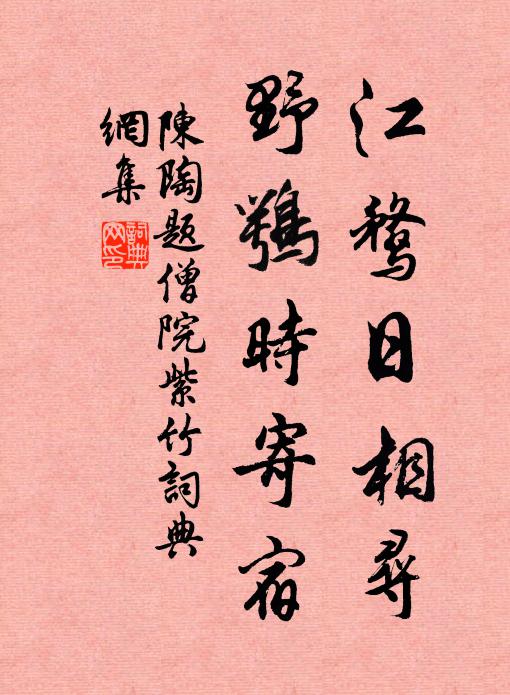 江鶩日相尋
野鶚時寄宿
陳陶題僧院紫竹詞典
網集
詞典網印